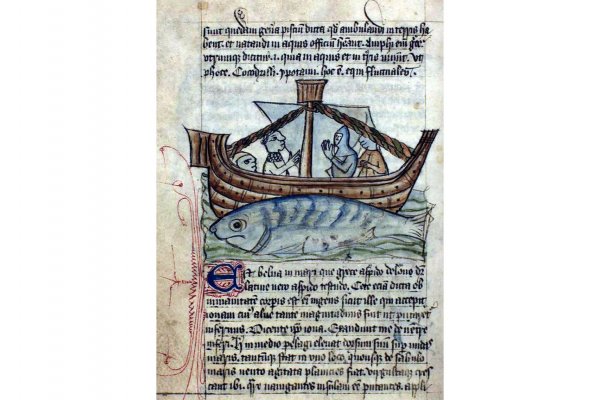 sunt quedam gena pisciu dicta qd ambulandi in terris ha
bent. et natandi in aquis officiu heant. Amphi em grec
utrumque dicitur .i. quia in aquis et in tris uiuit. ut
phoce. Cocodrilli. ypotami. hoc e. equi fluctuales.
Est belua in mari que grece aspido delone dr
latine uero aspido testudo. Cete etiam dicta ob
inmanitatem corpis est em ingens sicut ille qui accepit
ionam cui alue tante magnitudinis fuit ut putaret
infernus. Dicente ipo iona. Exaudiuit me de uentre
inferi. in medio pelagi eleuat dorsum suu sup undas
maris. tantumque stat in uno loco. quousque de sabulo
maris uento agitata planicies fiat.
tant ibi. nauigantes insulam ee putantes. appli